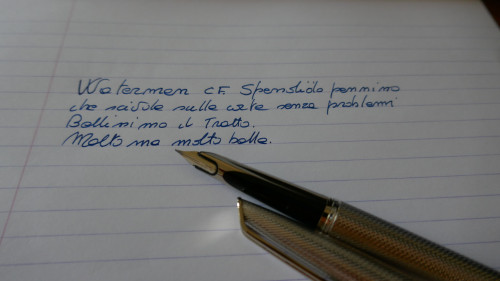 Waterman CF Splendido pennino
che scivola sulla carta senza problemi
Bellissimo il Tratto.
Molto ma molto bella.